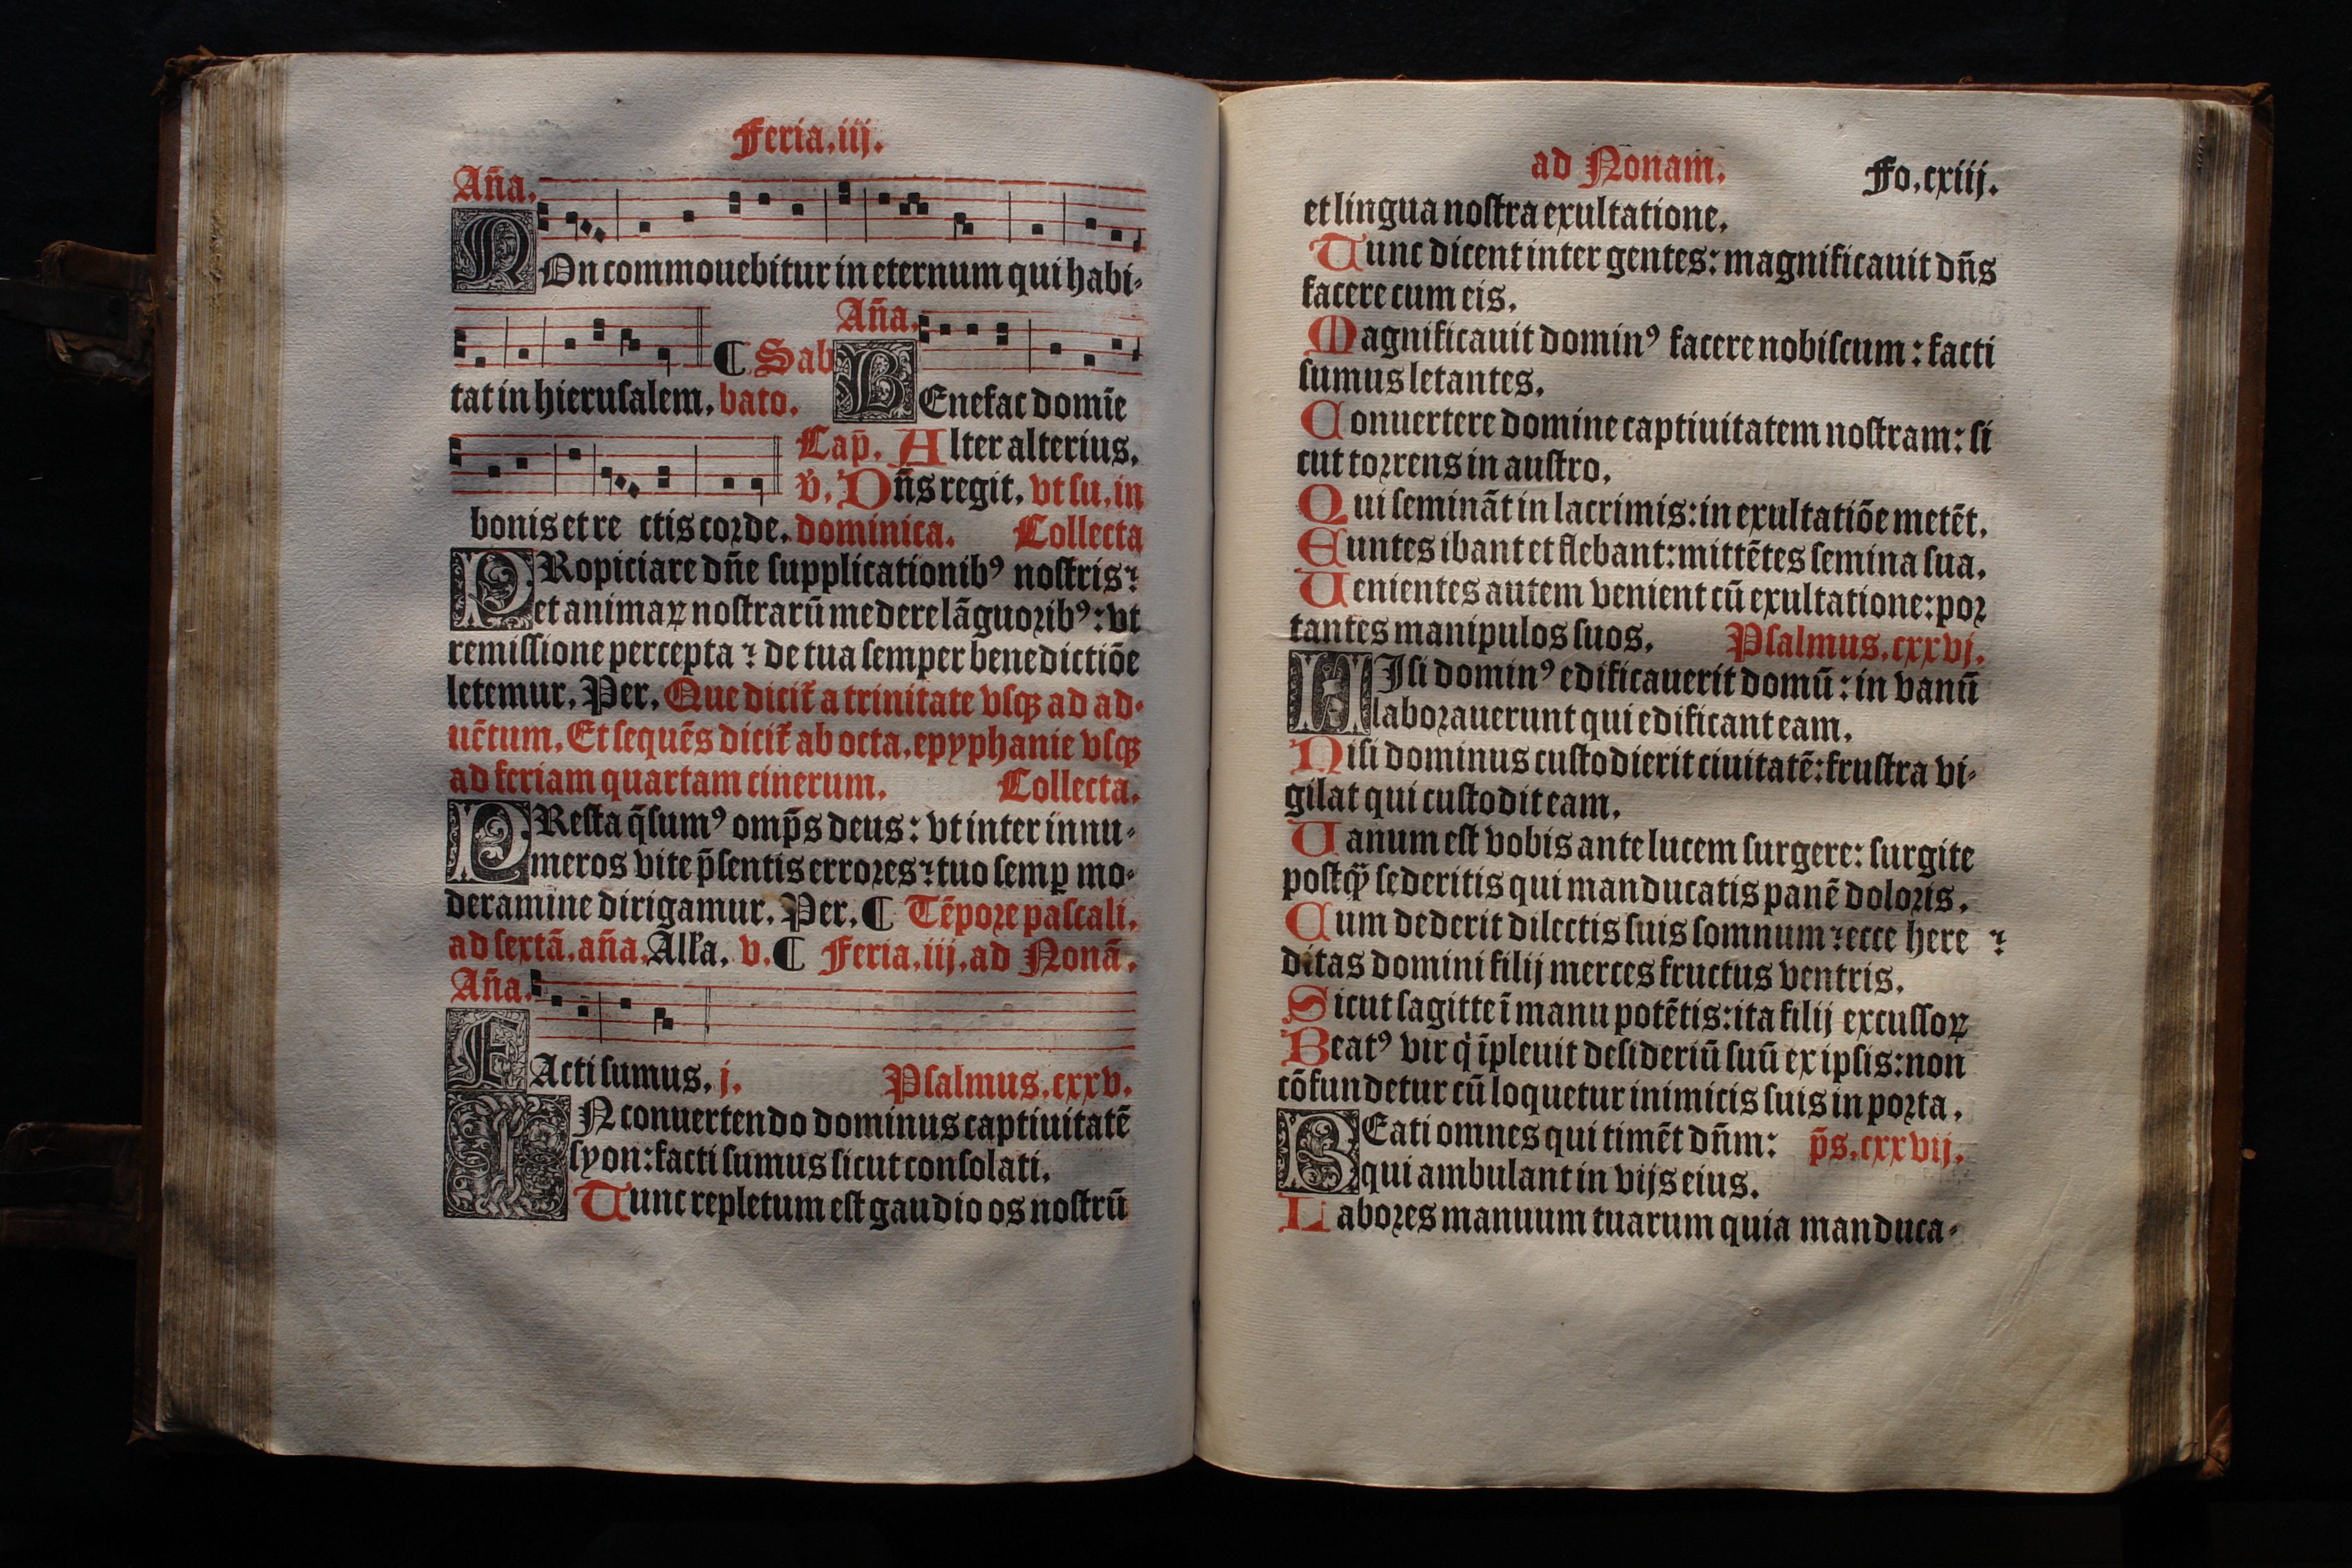 Feria.iij.
Aña.
NOn commouebitur in eternum qui habi-
Aña.
¶ Sab
tat in hieruſalem. bato. BEnefac domīe
Cap̄. Alter alterius.
v̄. Dn̄s regit. vt ſu. in
bonis et re ctis corde. dominica. Collecta
PRopiciare dn̄e ſupplicationibꝰ noſtris⁊
et animaꝝ noſtrarū medere lāguoribꝰ: vt
remiſſione percepta ⁊ de tua ſemper benedictiōe
letemur. Per. Que dicit̄ a trinitate vſqꝫ ad ad-
uētum. Et ſequēs dicit̄ ab octa. epyphanie vſqꝫ
ad feriam quartam cinerum. Collecta.
PReſta q̄ſumꝰ omp̄s deus: vt inter innu-
meros vite p̄ſentis errores⁊ tuo ſemꝑ mo-
deramine dirigamur. Per. ¶ Tēpore paſcali.
ad ſextā. aña. Alľa. v. ¶ Feria. iij. ad Nonā.
Aña.
FActi ſumus. j. Pſalmus. cxxv.
IN conuertendo dominus captiuitatē
ſyon: facti ſumus ſicut conſolati.
Tunc repletum eſt gaudio os noſtrū
ad Nonam. Fo. cxiij.
et lingua noſtra exultatione.
Tunc dicent inter gentes: magnificauit dn̄s
facere cum eis.
Magnificauit dominꝰ facere nobiſcum: facti
ſumus letantes.
Conuertere domine captiuitatem noſtram: ſi
cut torrens in auſtro.
Qui ſemināt in lacrimis: in exultatiōe metēt.
Euntes ibant et flebant: mittētes ſemina ſua.
Uenientes autem venient cū exultatione: por
tantes manipulos ſuos. Pſalmus. cxxvj.
NIſi dominꝰ edificauerit domū: in vanū
laborauerunt qui edificant eam.
Niſi dominus cuſtodierit ciuitatē: fruſtra vi-
gilat qui cuſtodit eam.
Uanum eſt vobis ante lucem ſurgere: ſurgite
poſtqꝫ̄ ſederitis qui manducatis panē doloris.
Cum dederit dilectis ſuis ſomnum⁊ ecce here ⁊
ditas domini filij merces fructus ventris.
Sicut ſagitte ī manu potētis: ita filij excuſſoꝝ
Beatꝰ vir q̇ īpleuit deſideriū ſuū ex ipſis: non
cōfundetur cū loquetur inimicis ſuis in porta.
BEati omnes qui timēt dn̄m: p̄s. cxxvij.
qui ambulant in vijs eius.
Labores manuum tuarum quia manduca-